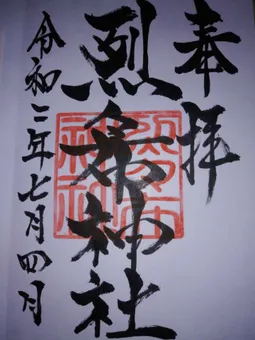 奉拝
烈名神社
令和二年七月四日